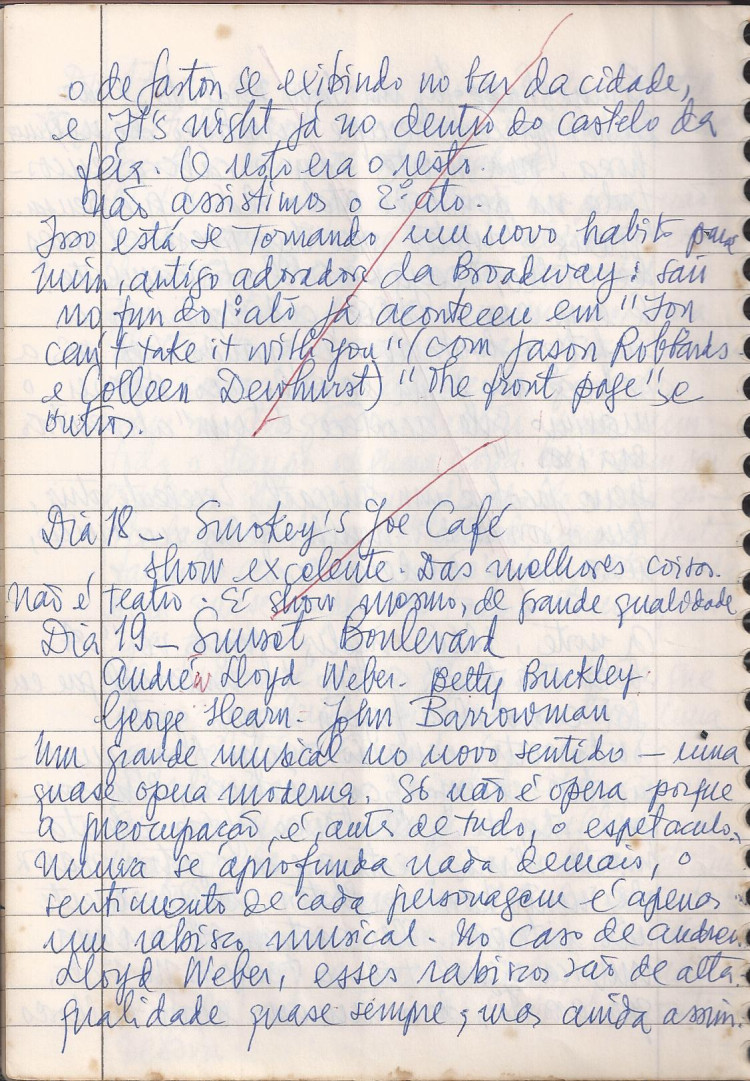 o de faston se exibindo no bar da cidade,
e It's night já no dentro do castelo da
fera. O resto era o resto.
Não assistimos o 2º ato.
Isso está se tornando um novo habito para
mim, antigo adorador da Broadway: sair
no fim do 1º ato já aconteceu em "You
can't take it with you" (com Jason Robbards
e Colleen Dewhurst) "The front page" e
outros.
Dia 18 – Smokey's Joe Café
show excelente. Das melhores coisas.
Não é teatro. É show mesmo, de grande qualidade
Dia 19 – Sunset Boulevard
Andrew Lloyd Weber. Betty Buckley
George Hearn. John Barrowman
Um grande musical no novo sentido – uma
quase opera moderna. Só não é opera porque
a preocupação é, antes de tudo, o espetaculo.
Nunca se aprofunda nada demais, o
sentimento de cada personagem é apenas
um rabisco musical. No caso de Andrew
Lloyd Weber, esses rabiscos são de alta
qualidade quase sempre, mas ainda assim.